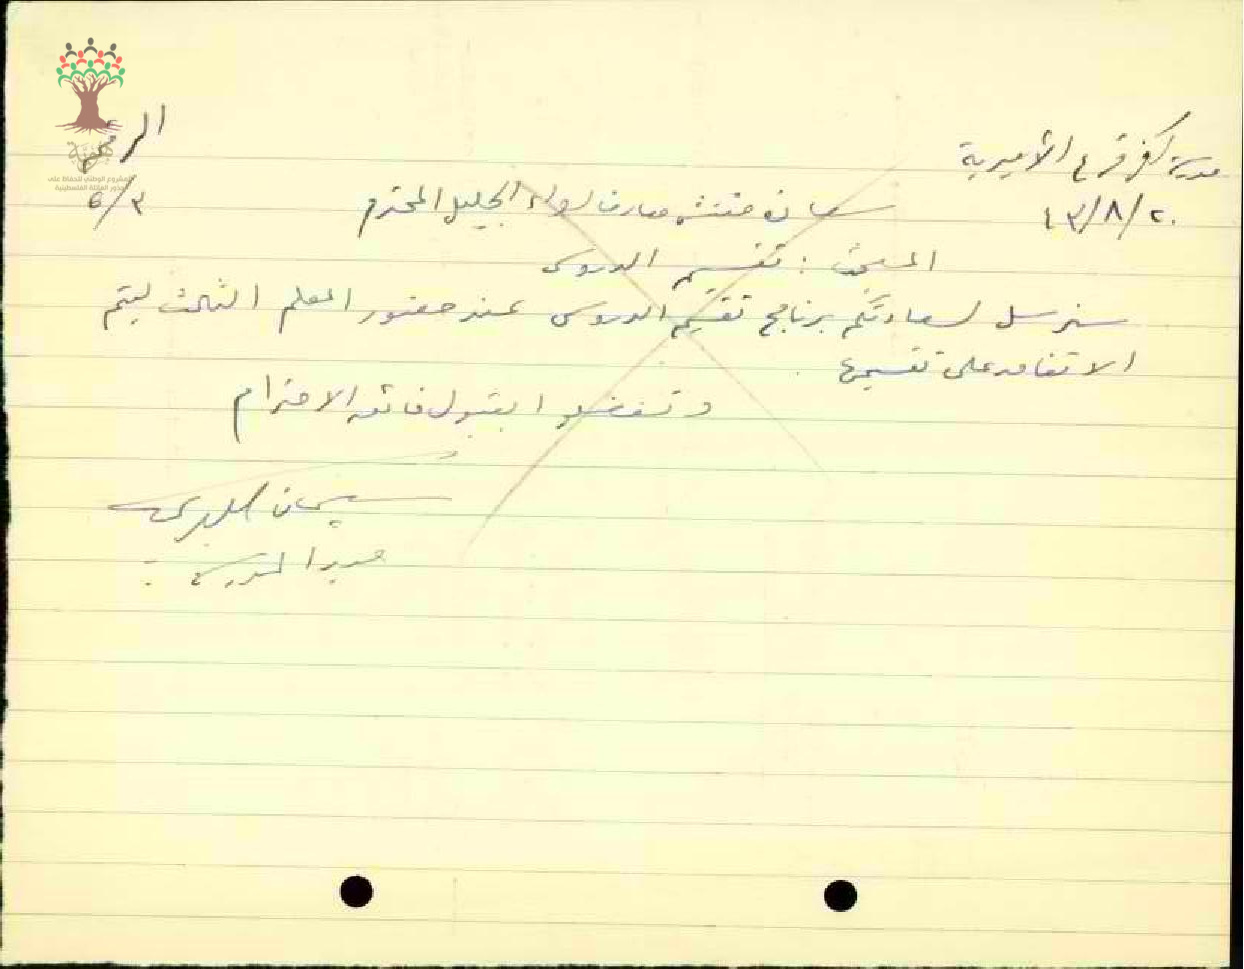 مدرسة كفر قرع الأميرية
الرقم
٢٠/٨/٤٣
٦/٣
سعادة مفتش معارف لواء الجليل المحترم
المبحث : تقسيم الدروس
سنرسل لسعادتكم برنامج تقسيم الدروس عند حضور المعلم الثالث ليتم
الاتفاق على تقسيمها
وتفضلوا بقبول فائق الاحترام
سليمان
مدير المدرسة
المشروع الوطني للحفاظ على
جذور العائلة الفلسطينية